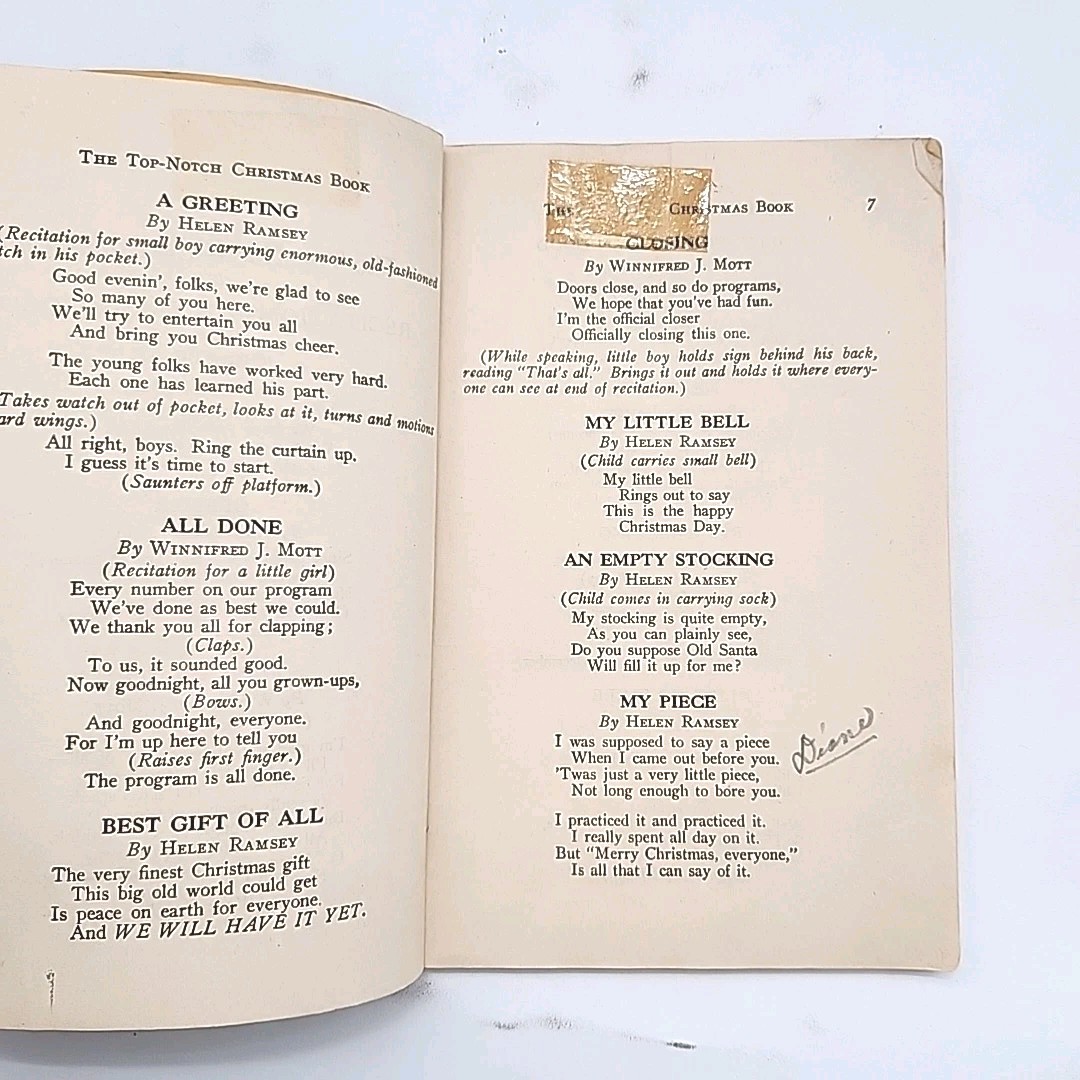 THE TOP-NOTCH CHRISTMAS BOOK
A GREETING
By HELEN RAMSEY
(Recitation for small boy carrying enormous, old-fashioned
tch in his pocket.)
Good evenin', folks, we're glad to see
So many of you here.
We'll try to entertain you all
And bring you Christmas cheer.
The young folks have worked very hard.
Each one has learned his part.
Takes watch out of pocket, looks at it, turns and motions
ard wings.)
All right, boys. Ring the curtain up.
I guess it's time to start.
(Saunters off platform.)
ALL DONE
By WINNIFRED J. MOTT
(Recitation for a little girl)
Every number on our program
We've done as best we could.
We thank you all for clapping;
(Claps.)
To us, it sounded good.
Now goodnight, all you grown-ups,
(Bows.)
And goodnight, everyone.
For I'm up here to tell you
(Raises first finger.)
The program is all done.
BEST GIFT OF ALL
By HELEN RAMSEY
The very finest Christmas gift
This big old world could get
Is peace on earth for everyone.
And WE WILL HAVE IT YET.
THE CHRISTMAS BOOK 7
CLOSING
By WINNIFRED J. MOTT
Doors close, and so do programs,
We hope that you've had fun.
I'm the official closer
Officially closing this one.
(While speaking, little boy holds sign behind his back,
reading "That's all." Brings it out and holds it where every-
one can see at end of recitation.)
MY LITTLE BELL
By HELEN RAMSEY
(Child carries small bell)
My little bell
Rings out to say
This is the happy
Christmas Day.
AN EMPTY STOCKING
By HELEN RAMSEY
(Child comes in carrying sock)
My stocking is quite empty,
As you can plainly see,
Do you suppose Old Santa
Will fill it up for me?
MY PIECE
By HELEN RAMSEY
I was supposed to say a piece
When I came out before you.
'Twas just a very little piece,
Not long enough to bore you.
Diane
I practiced it and practiced it.
I really spent all day on it.
But "Merry Christmas, everyone,"
Is all that I can say of it.